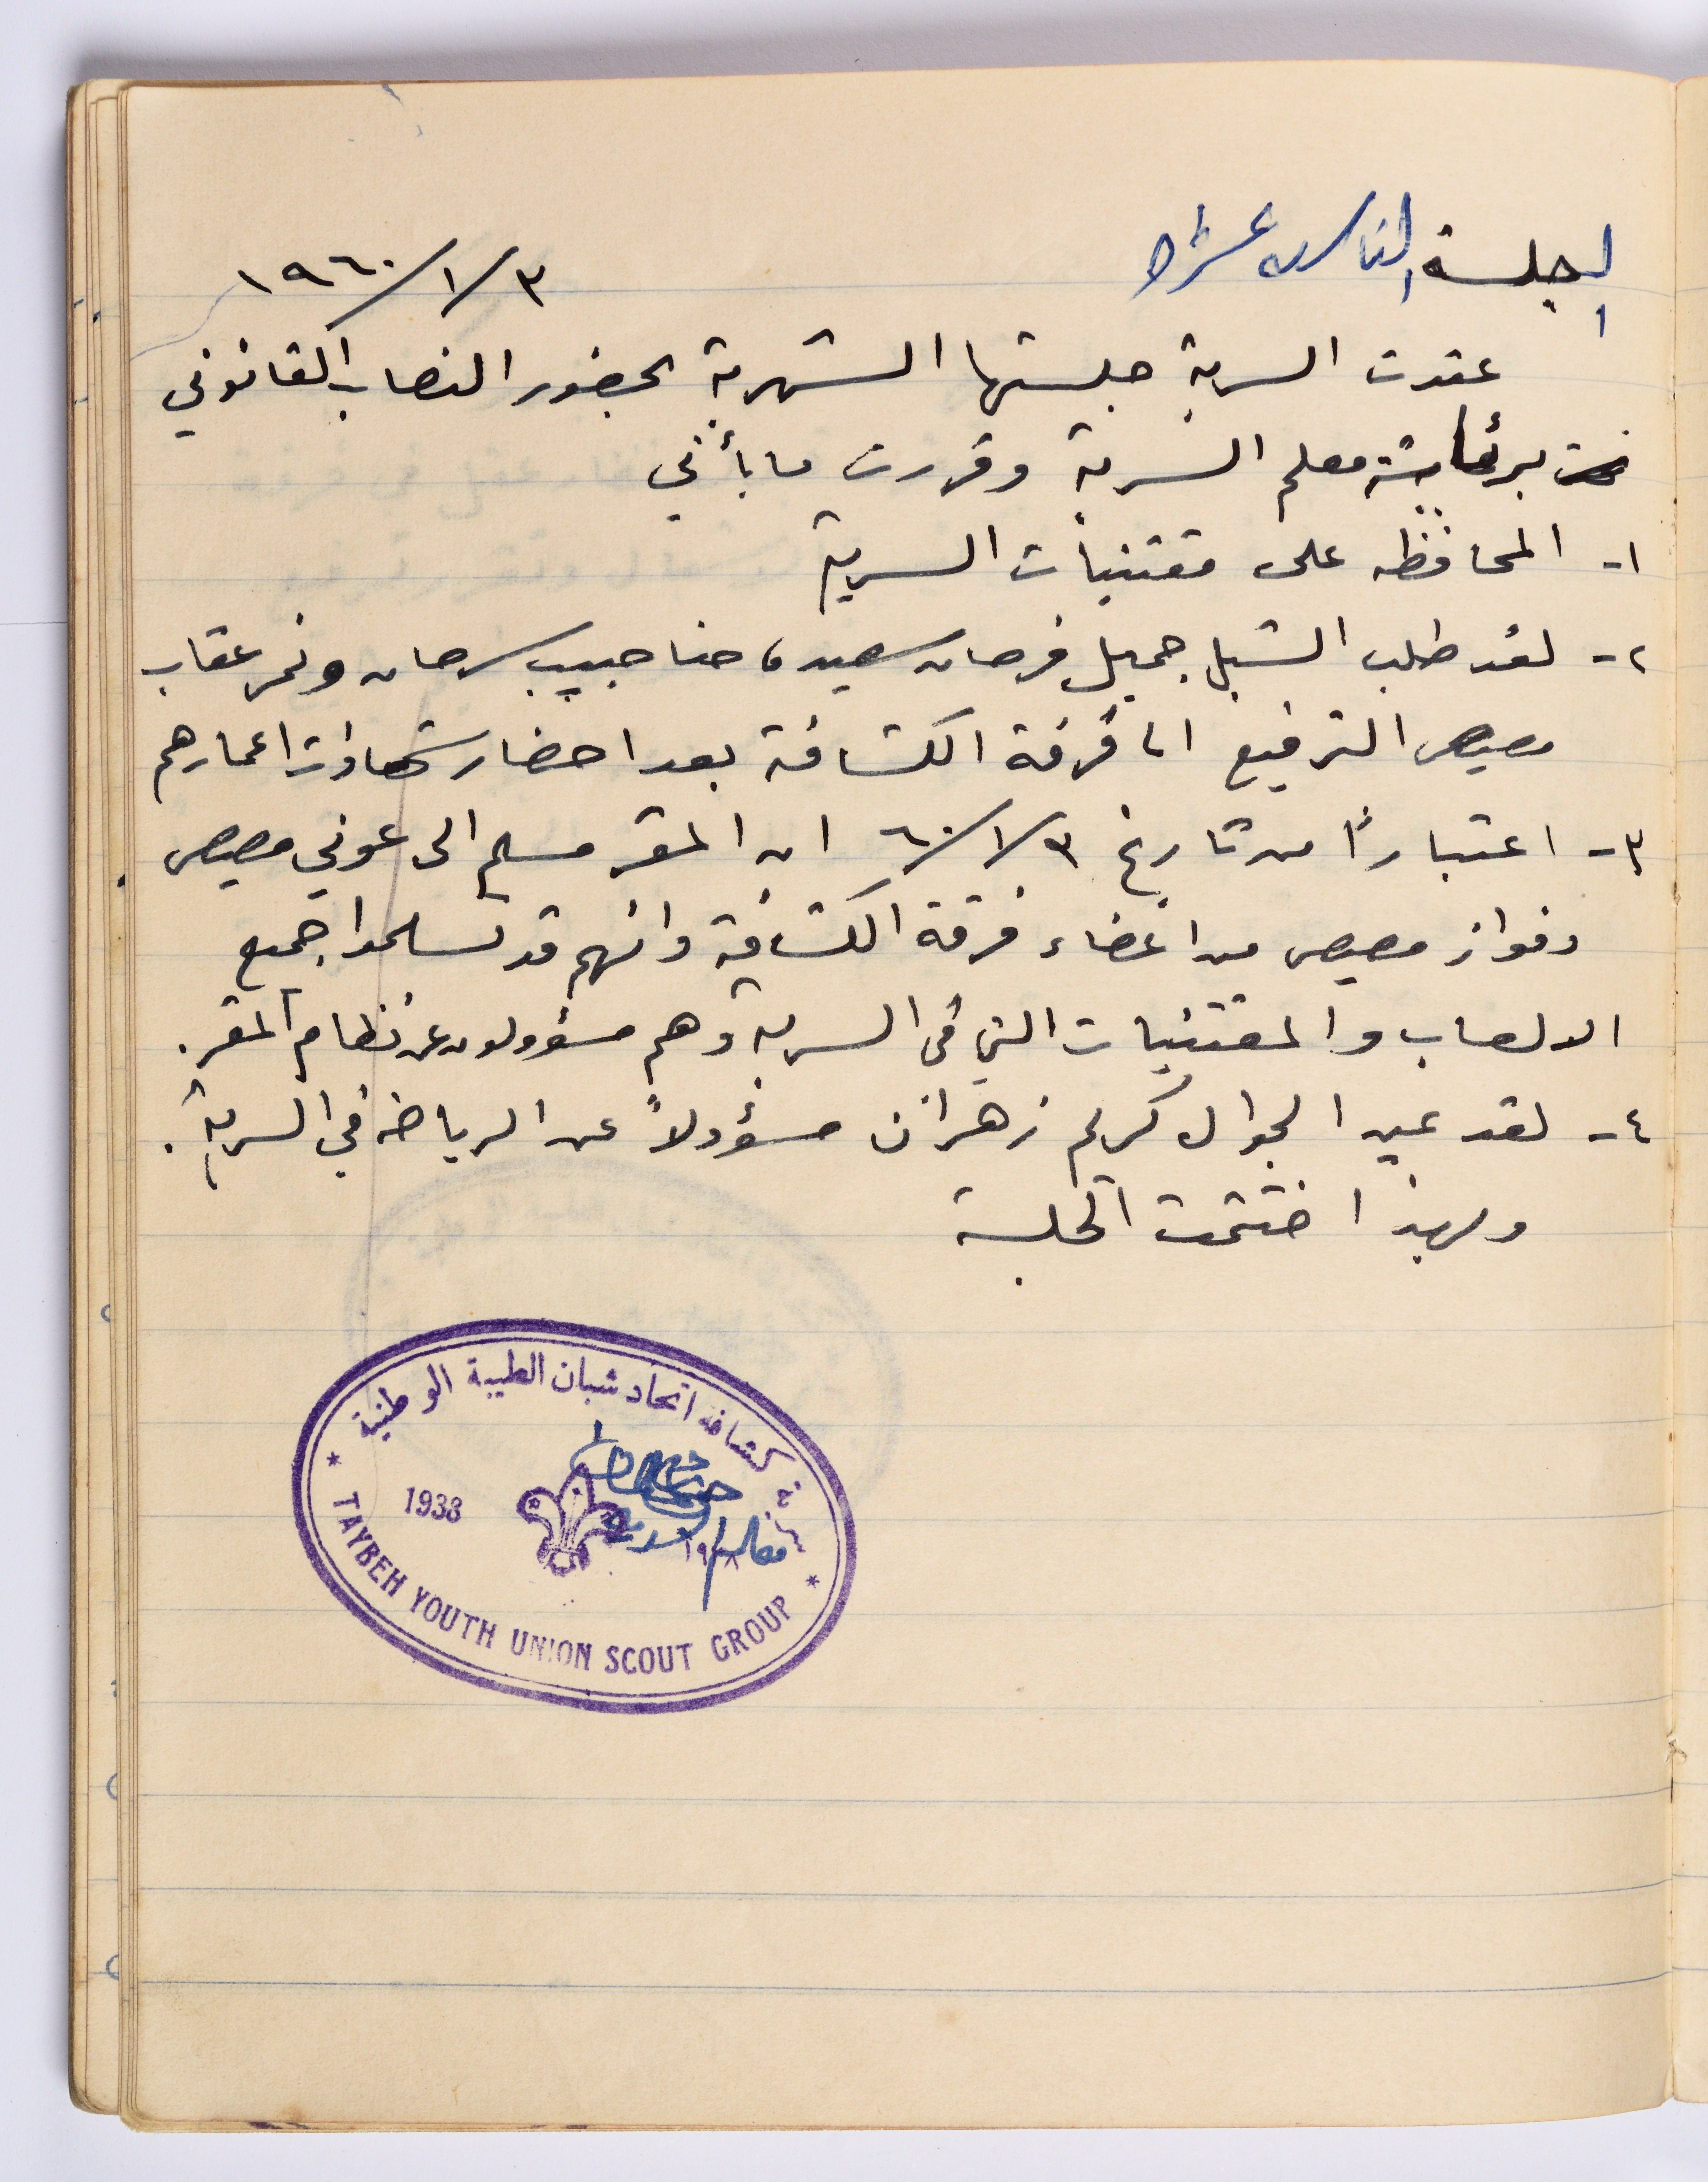 الجلسة الثامنة عشرة
١٩٦٠/١/٣
عقدت السرية جلستها الشهرية بحضور النصاب القانوني
برئاسة معلم السرية وقررت ما يأتي
١- المحافظه على مقتنيات السرية
٢- لقد طلب الشبل جميل فرحان سعيد، حنا حبيب سرحان ونمر عقاب
مصيص الترفيع الى فرقة الكشافة بعد احضار شهادات اعمارهم
٣- اعتباراً من تاريخ ٦٠/١/٣ ان المقر مسلم الى عوني مصيص
وفواز مصيص من اعضاء فرقة الكشافة وانهم قد تسلموا جميع
الالعاب والمقتنيات التي في السرية وهم مسؤولون عن نظام المقر.
٤- لقد عين الجوال كريم زهران مسؤولاً عن الرياضه في السرية.
وبهذا اختتمت الجلسة
سرية كشافة اتحاد شبان الطيبة الوطنية
1938
١٩٣٨
معلم السرية
TAYBEH YOUTH UNION SCOUT GROUP